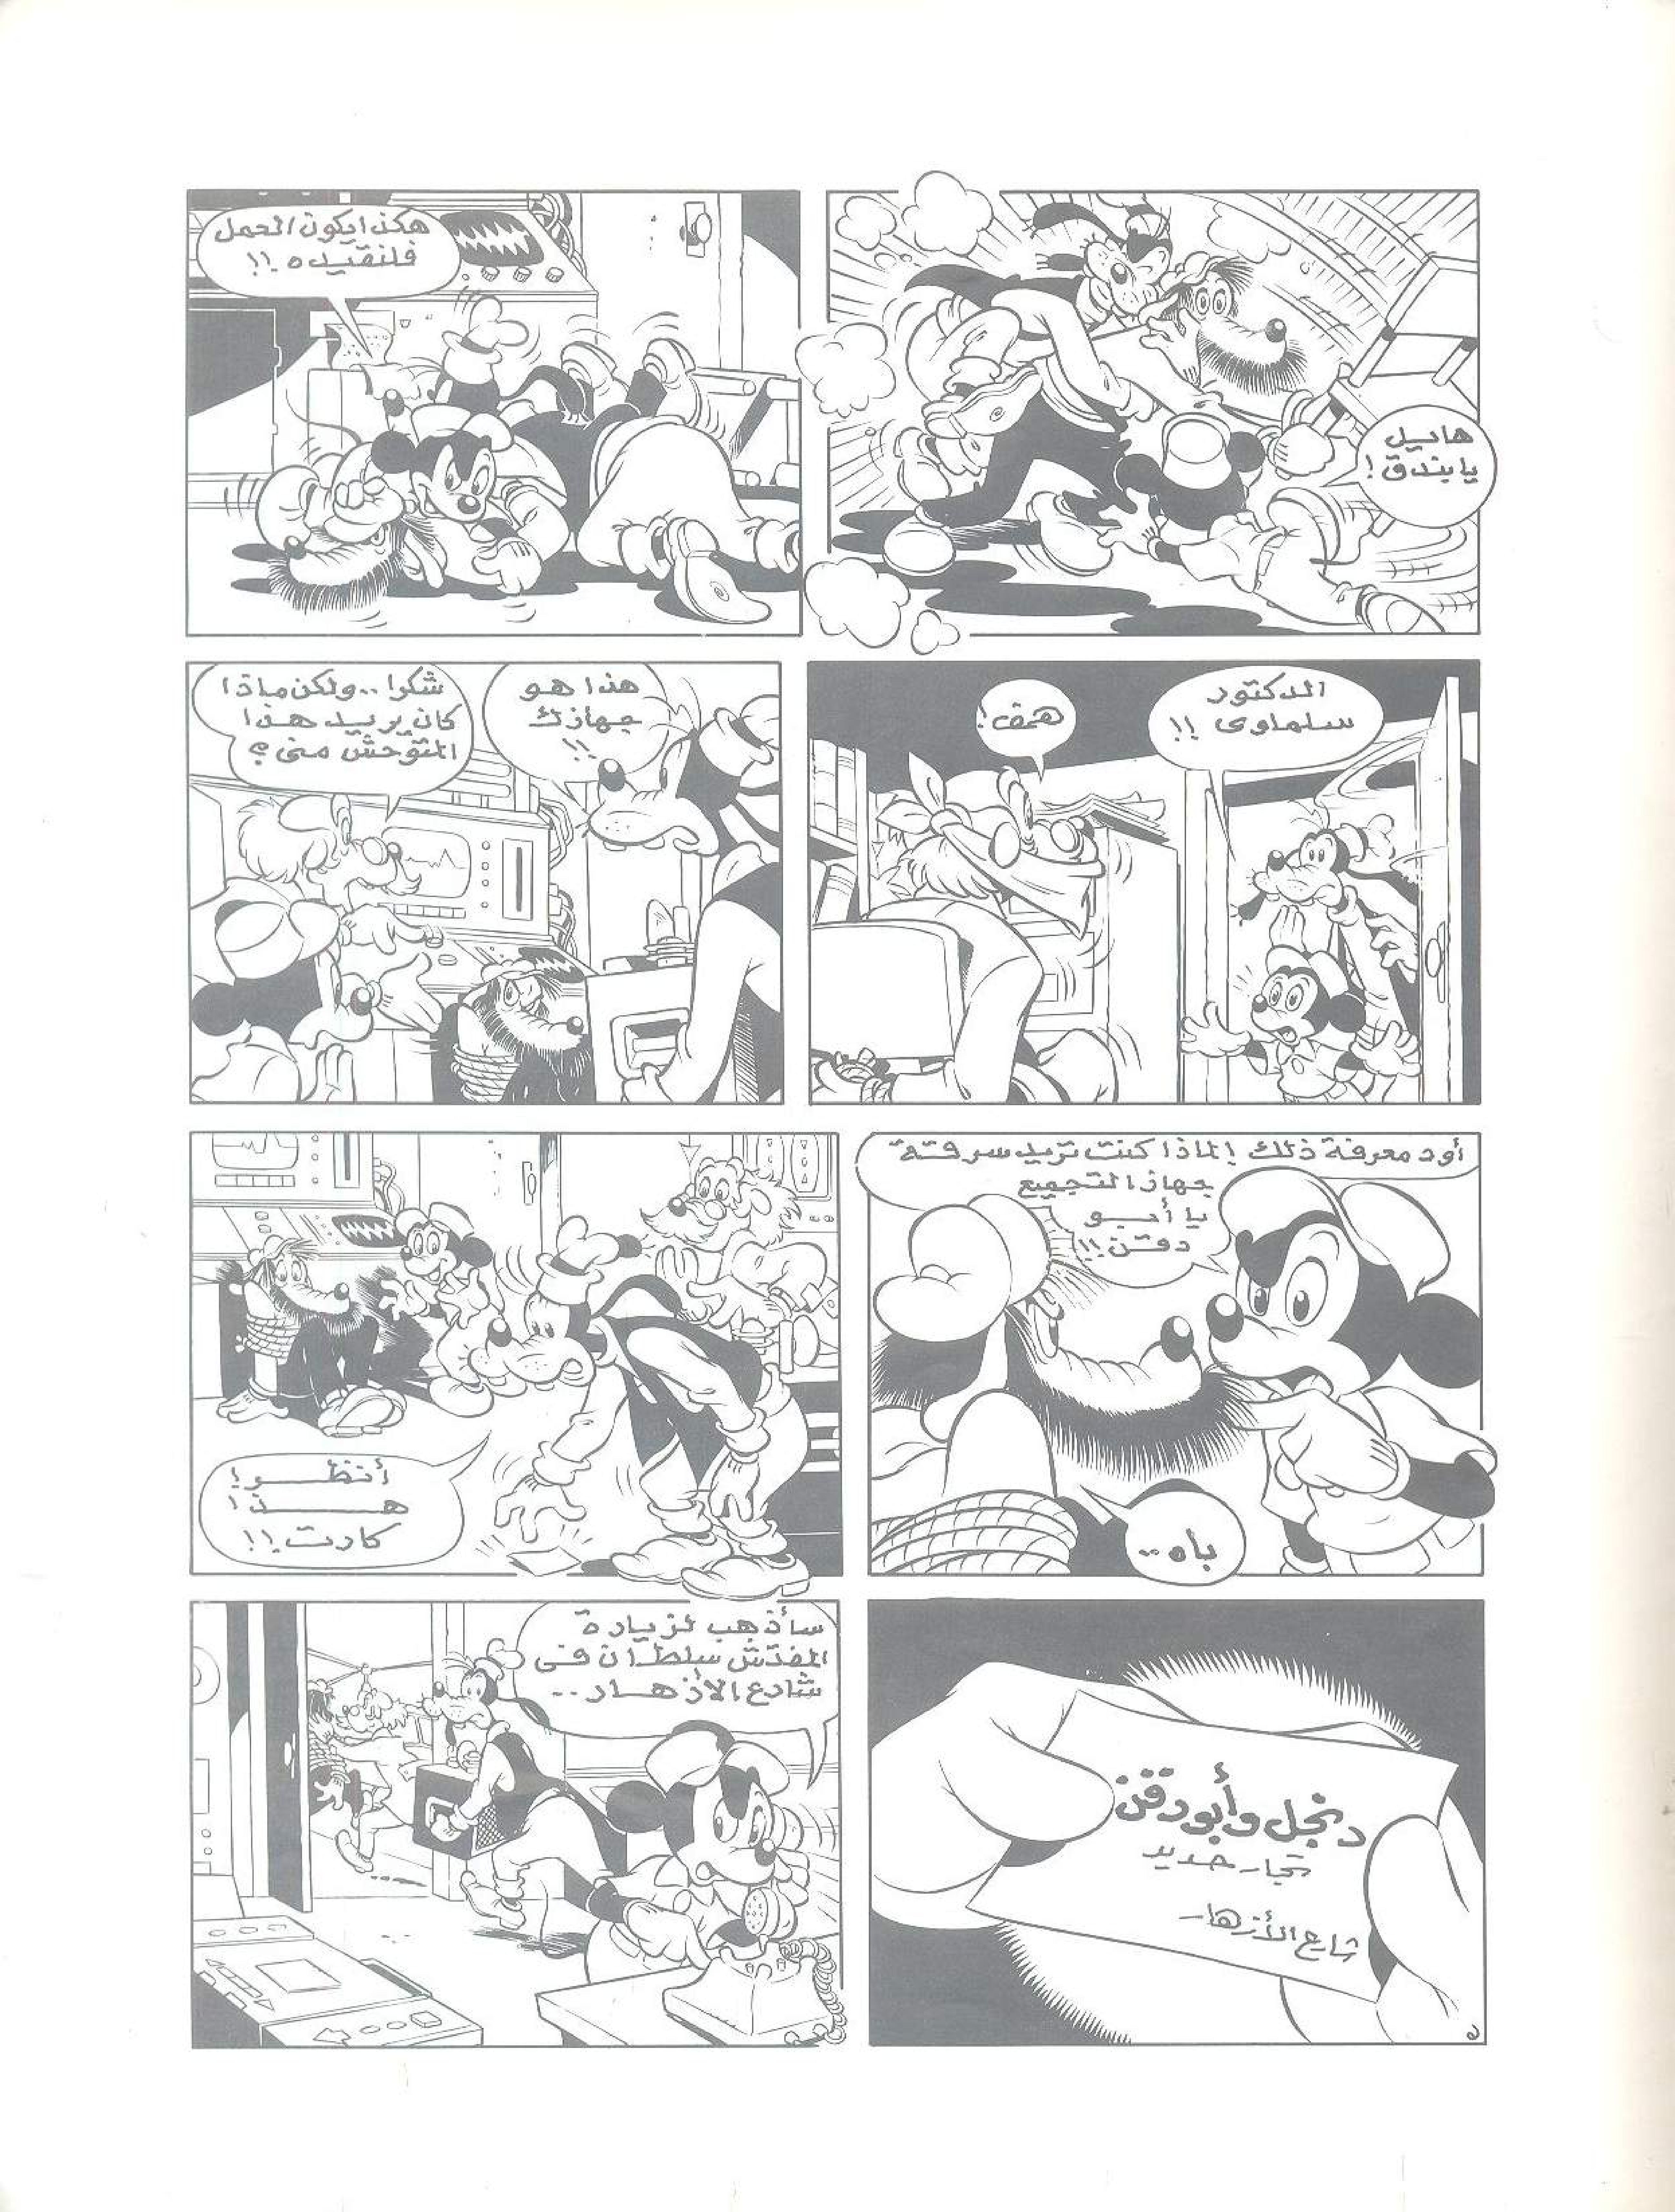 هايل
يا بندق!
هكذا يكون العمل
فلنقيده!!
الدكتور
سلماوى!!
همف!
هذا هو
جهازك
!!
شكرا.. ولكن ماذا
كان يريد هذا
المتوحش منى؟
أود معرفة ذلك! لماذا كنت تريد سرقة
جهاز التجميع
يا أبو
دقن!!
باه..
أنظر!
هذا
كارت!!
دنجل وأبو دقن
تجار حديد
شارع الأزهار
سأذهب لزيارة
المفتش سلطان فى
شارع الأزهار..